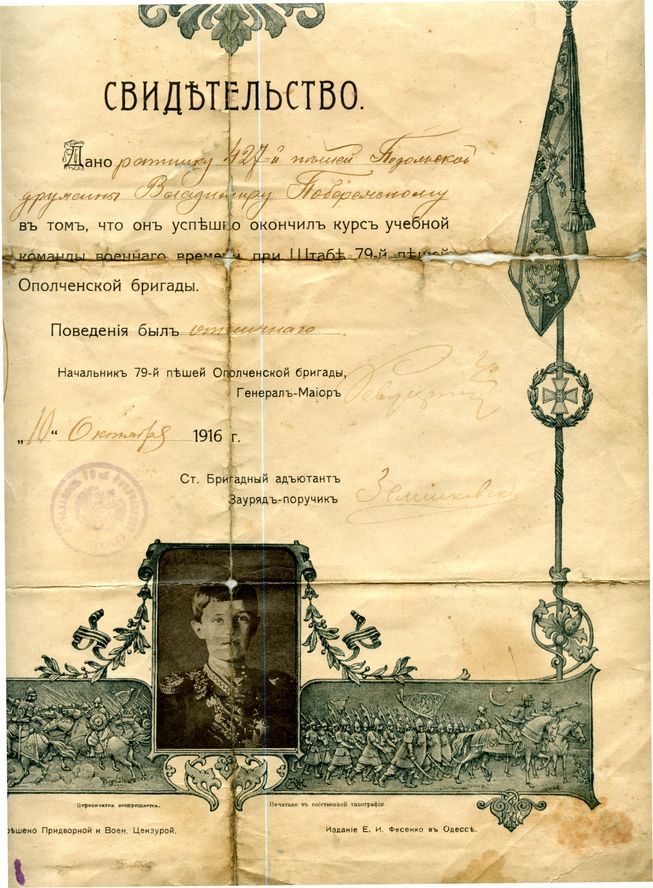 СВИДѢТЕЛЬСТВО.
Дано ратнику 427-й пѣшей Подольской
дружины Владимиру
въ томъ, что онъ успѣшно окончилъ курсъ учебной
команды военнаго времени при Штабѣ 79-й пѣшей
Ополченской бригады.
Поведенія былъ отличнаго
Начальникъ 79-й пѣшей Ополченской бригады,
Генералъ-Маіоръ
„10“ Октября 1916 г.
Ст. Бригадный адъютантъ
Заурядъ-поручикъ
Перепечатка воспрещается.
Печатано въ собственной типографіи
Придворной и Воен. Цензурой.
Изданіе Е. И. Фесенко въ Одессѣ.